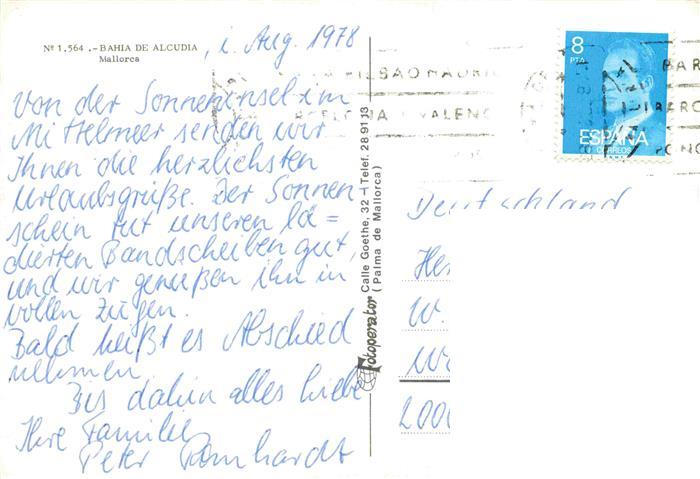 Nº 1.564 .- BAHIA DE ALCUDIA
Mallorca
, i. Aug. 1978
Von der Sonneninsel im
Mittelmeer senden wir
Ihnen die herzlichsten
Urlaubsgrüße. Der Sonnen
schein tut unseren lä=
dierten Bandscheiben gut,
und wir genießen ihn in
vollen Zügen.
Bald heißt es Abschied
nehmen.
Bis dahin alles Liebe
Ihre Familie
Peter
Fotoperator
Calle Goethe, 32 - (Telef. 28 91 13
(Palma de Mallorca)
BILBAO MADRID
VALENC
BAR
8
PTA
ESPAÑA
CORREOS
Deutschland